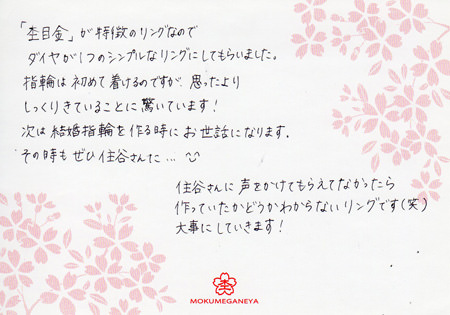 「杢目金」が特徴のリングなので
ダイヤが1つのシンプルなリングにしてもらいました。
指輪は初めて着けるのですが、思ったより
しっくりきていることに驚いています！
次は結婚指輪を作る時にお世話になります。
その時もぜひ住谷さんに…
住谷さんに声をかけてもらえてなかったら
作っていたかどうかわからないリングです(笑)
大事にしていきます！
杢
MOKUMEGANEYA